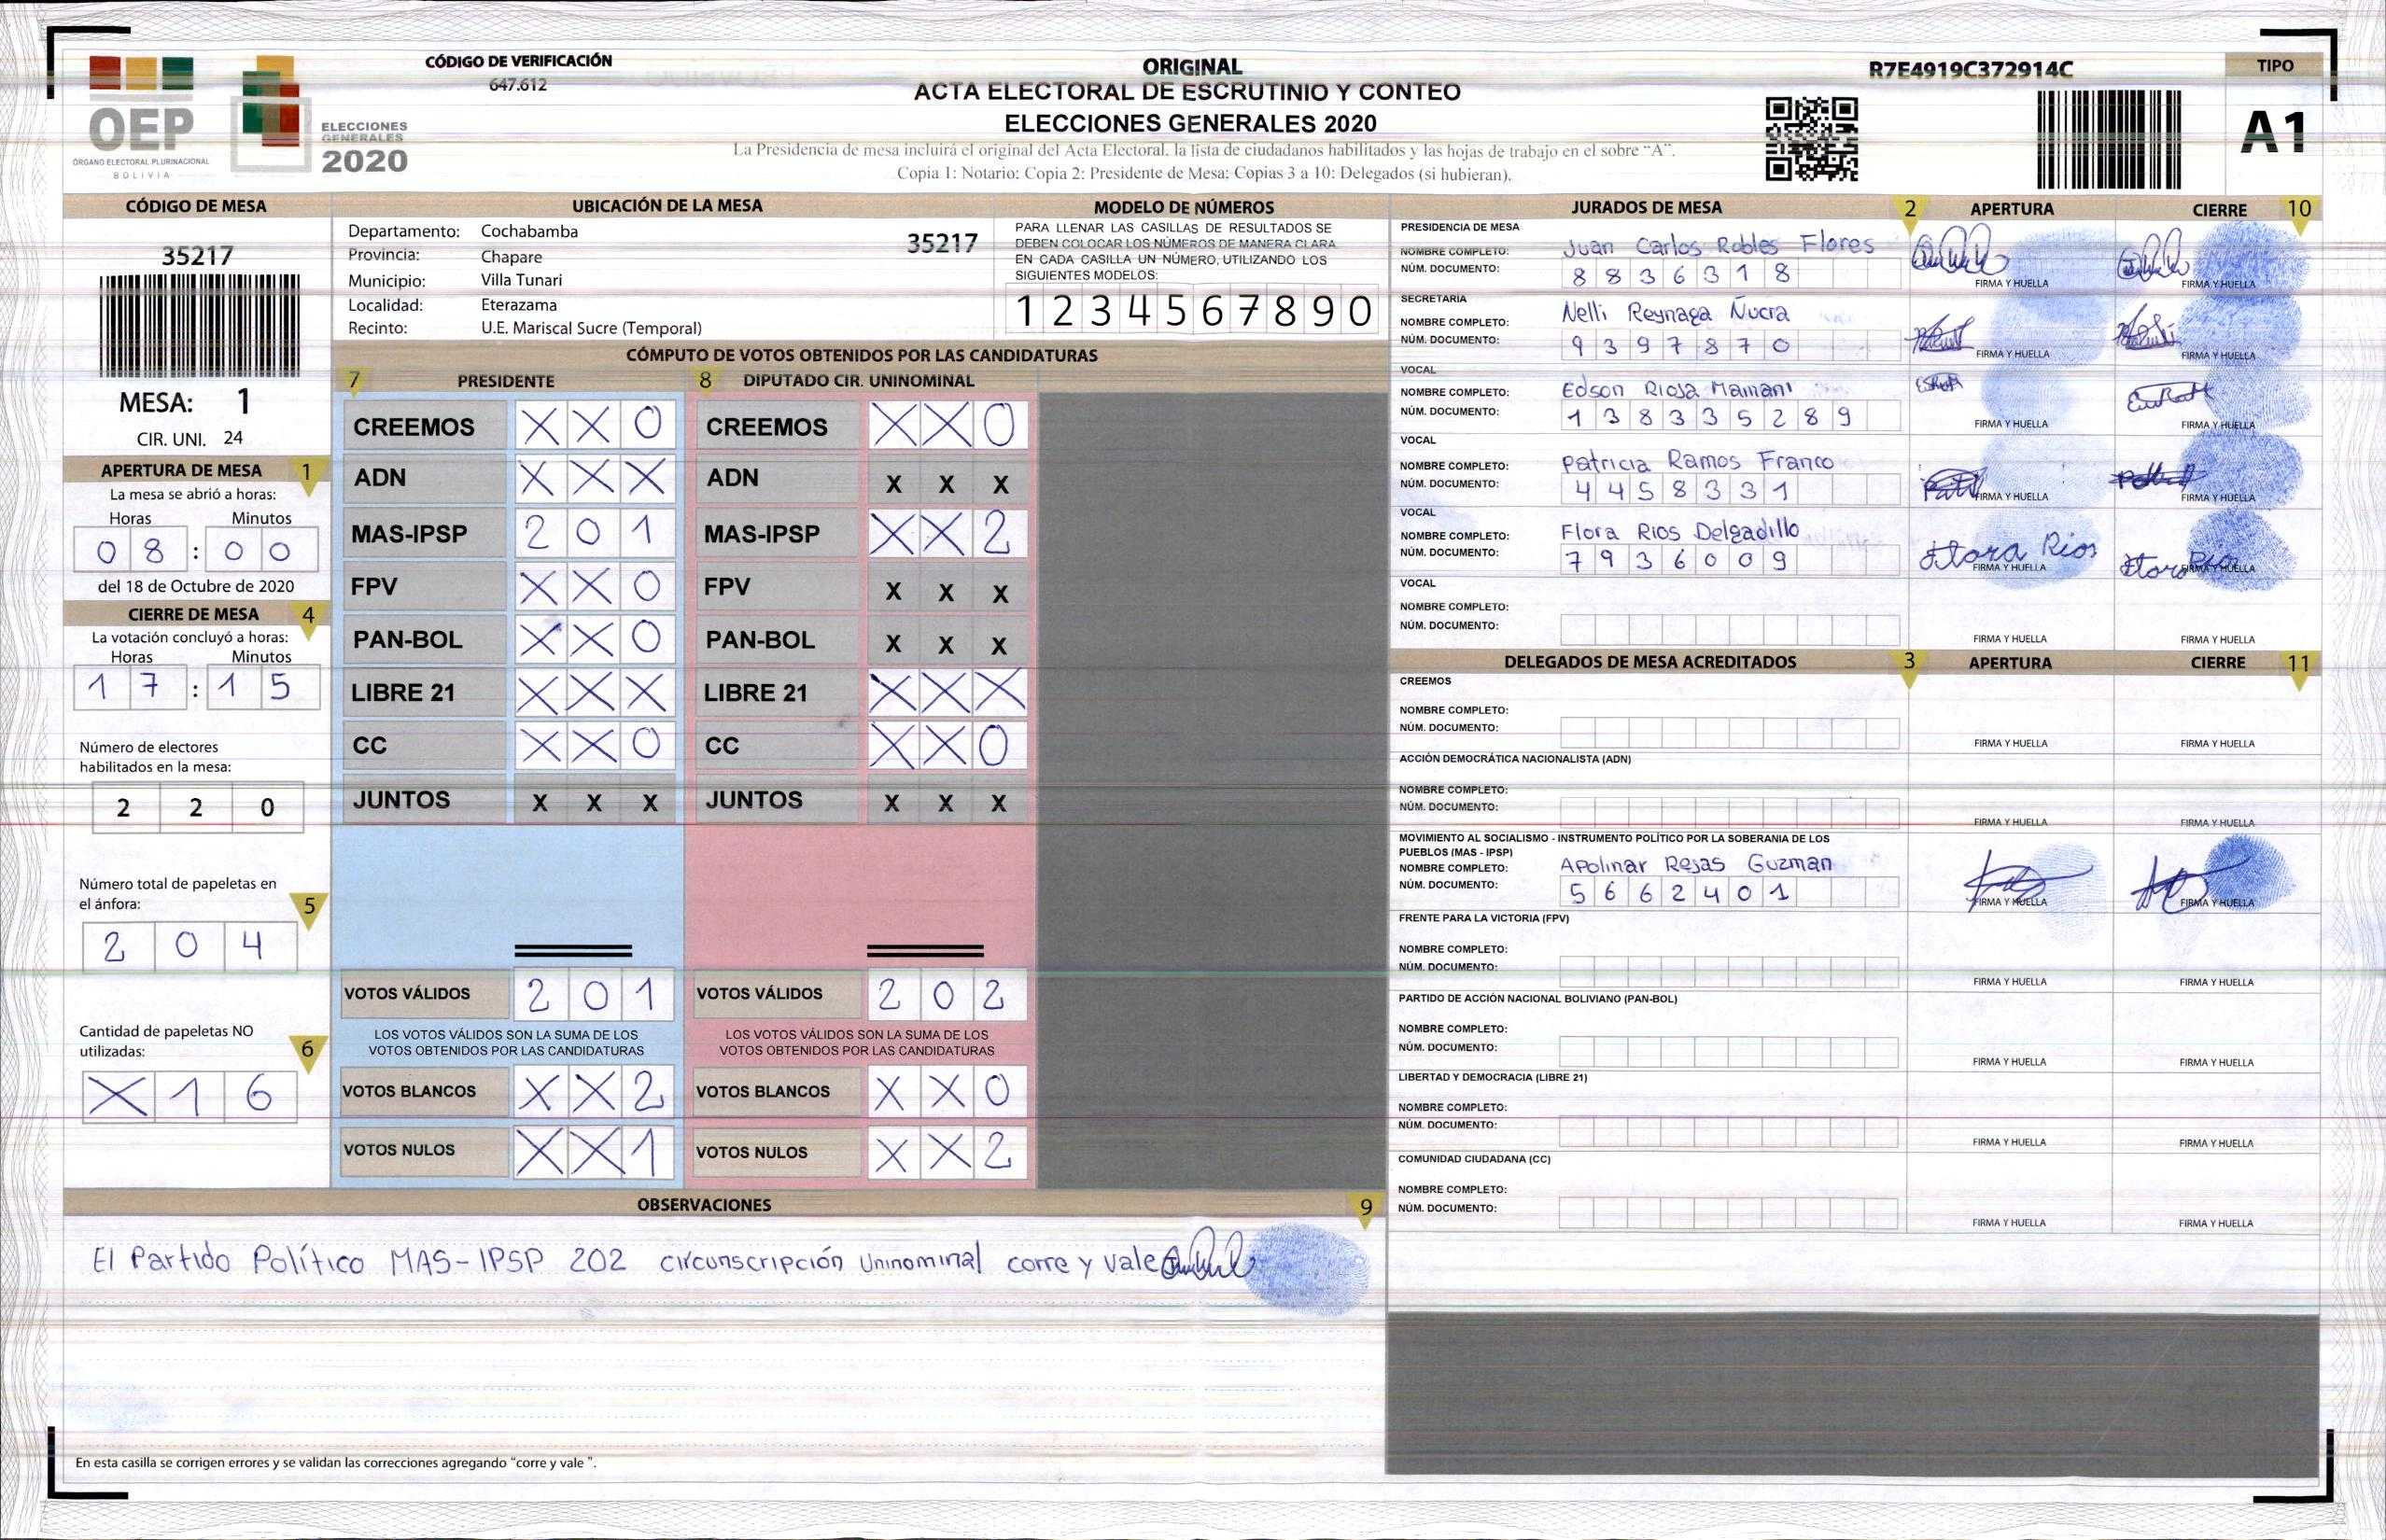 CÓDIGO DE VERIFICACIÓN
647.612
ORIGINAL
ACTA ELECTORAL DE ESCRUTINIO Y CONTEO
ELECCIONES GENERALES 2020
La Presidencia de mesa incluirá el original del Acta Electoral, la lista de ciudadanos habilitados y las hojas de trabajo en el sobre “A”.
Copia 1: Notario: Copia 2: Presidente de Mesa: Copias 3 a 10: Delegados (si hubieran).
R7E4919C372914C
TIPO
A1
OEP
ÓRGANO ELECTORAL PLURINACIONAL
BOLIVIA
ELECCIONES
GENERALES
2020
CÓDIGO DE MESA
35217
MESA: 1
CIR. UNI. 24
APERTURA DE MESA 1
La mesa se abrió a horas:
Horas Minutos
0 8 : 0 0
del 18 de Octubre de 2020
CIERRE DE MESA 4
La votación concluyó a horas:
Horas Minutos
1 7 : 1 5
Número de electores
habilitados en la mesa:
2 2 0
Número total de papeletas en
el ánfora: 5
2 0 4
Cantidad de papeletas NO
utilizadas: 6
X 1 6
UBICACIÓN DE LA MESA
Departamento: Cochabamba 35217
Provincia: Chapare
Municipio: Villa Tunari
Localidad: Eterazama
Recinto: U.E. Mariscal Sucre (Temporal)
MODELO DE NÚMEROS
PARA LLENAR LAS CASILLAS DE RESULTADOS SE
DEBEN COLOCAR LOS NÚMEROS DE MANERA CLARA
EN CADA CASILLA UN NÚMERO, UTILIZANDO LOS
SIGUIENTES MODELOS:
1 2 3 4 5 6 7 8 9 0
CÓMPUTO DE VOTOS OBTENIDOS POR LAS CANDIDATURAS
7 PRESIDENTE 8 DIPUTADO CIR. UNINOMINAL
CREEMOS X X 0 CREEMOS X X 0
ADN X X X ADN X X X
MAS-IPSP 2 0 1 MAS-IPSP X X 2
FPV X X 0 FPV X X X
PAN-BOL X X 0 PAN-BOL X X X
LIBRE 21 X X X LIBRE 21 X X X
CC X X 0 CC X X 0
JUNTOS X X X JUNTOS X X X
VOTOS VÁLIDOS 2 0 1 VOTOS VÁLIDOS 2 0 2
LOS VOTOS VÁLIDOS SON LA SUMA DE LOS LOS VOTOS VÁLIDOS SON LA SUMA DE LOS
VOTOS OBTENIDOS POR LAS CANDIDATURAS VOTOS OBTENIDOS POR LAS CANDIDATURAS
VOTOS BLANCOS X X 2 VOTOS BLANCOS X X 0
VOTOS NULOS X X 1 VOTOS NULOS X X 2
OBSERVACIONES 9
El Partido Político MAS-IPSP 202 circunscripción Uninominal corre y vale
En esta casilla se corrigen errores y se validan las correcciones agregando “corre y vale ”.
JURADOS DE MESA 2 APERTURA CIERRE 10
PRESIDENCIA DE MESA
NOMBRE COMPLETO: Juan Carlos Robles Flores
NÚM. DOCUMENTO: 8 8 3 6 3 1 8 FIRMA Y HUELLA FIRMA Y HUELLA
SECRETARÍA
NOMBRE COMPLETO: Nelli Reynaga Ñucra
NÚM. DOCUMENTO: 9 3 9 7 8 7 0 FIRMA Y HUELLA FIRMA Y HUELLA
VOCAL
NOMBRE COMPLETO: Edson Rioja Mamani
NÚM. DOCUMENTO: 1 3 8 3 3 5 2 8 9 FIRMA Y HUELLA FIRMA Y HUELLA
VOCAL
NOMBRE COMPLETO: Patricia Ramos Franco
NÚM. DOCUMENTO: 4 4 5 8 3 3 1 FIRMA Y HUELLA FIRMA Y HUELLA
VOCAL
NOMBRE COMPLETO: Flora Rios Delgadillo
NÚM. DOCUMENTO: 7 9 3 6 0 0 9 Flora Rios FIRMA Y HUELLA Flora Rios FIRMA Y HUELLA
VOCAL
NOMBRE COMPLETO:
NÚM. DOCUMENTO: FIRMA Y HUELLA FIRMA Y HUELLA
DELEGADOS DE MESA ACREDITADOS 3 APERTURA CIERRE 11
CREEMOS
NOMBRE COMPLETO:
NÚM. DOCUMENTO: FIRMA Y HUELLA FIRMA Y HUELLA
ACCIÓN DEMOCRÁTICA NACIONALISTA (ADN)
NOMBRE COMPLETO:
NÚM. DOCUMENTO: FIRMA Y HUELLA FIRMA Y HUELLA
MOVIMIENTO AL SOCIALISMO - INSTRUMENTO POLÍTICO POR LA SOBERANIA DE LOS
PUEBLOS (MAS - IPSP)
NOMBRE COMPLETO: Apolinar Rejas Guzman
NÚM. DOCUMENTO: 5 6 6 2 4 0 1 FIRMA Y HUELLA FIRMA Y HUELLA
FRENTE PARA LA VICTORIA (FPV)
NOMBRE COMPLETO:
NÚM. DOCUMENTO: FIRMA Y HUELLA FIRMA Y HUELLA
PARTIDO DE ACCIÓN NACIONAL BOLIVIANO (PAN-BOL)
NOMBRE COMPLETO:
NÚM. DOCUMENTO: FIRMA Y HUELLA FIRMA Y HUELLA
LIBERTAD Y DEMOCRACIA (LIBRE 21)
NOMBRE COMPLETO:
NÚM. DOCUMENTO: FIRMA Y HUELLA FIRMA Y HUELLA
COMUNIDAD CIUDADANA (CC)
NOMBRE COMPLETO:
NÚM. DOCUMENTO: FIRMA Y HUELLA FIRMA Y HUELLA